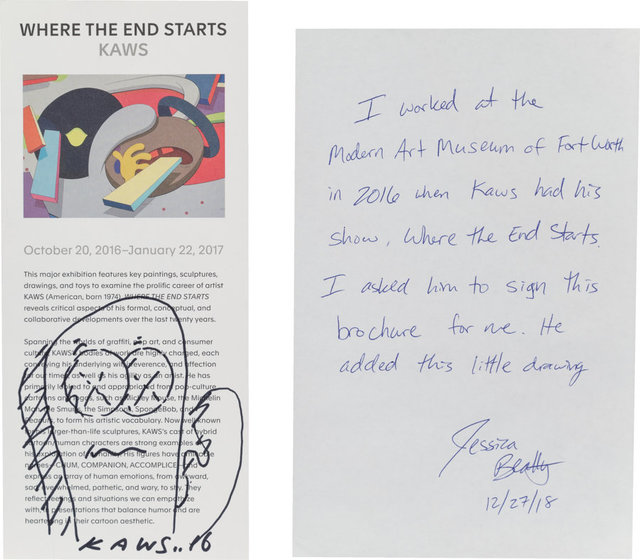 WHERE THE END STARTS
KAWS
October 20, 2016–January 22, 2017
This major exhibition features key paintings, sculptures,
drawings, and toys to examine the prolific career of artist
KAWS (American, born 1974). WHERE THE END STARTS
reveals critical aspects of his formal, conceptual, and
collaborative developments over the last twenty years.
Spanning the worlds of graffiti, pop art, and consumer
culture, KAWS' bodies of work are highly charged, each
conveying his underlying wit, irreverence, and affection
for our times, as well as his agility as an artist. He has
primarily looked to and appropriated from pop-culture
cartoons and icons, such as Mickey Mouse, the Michelin
Man, the Smurfs, the Simpsons, SpongeBob, and
to form his artistic vocabulary. Now well known
for his larger-than-life sculptures, KAWS's cast of hybrid
cartoon/human characters are strong examples of
his exploration of humanity. His figures have
names—CHUM, COMPANION, ACCOMPLICE—and
express an array of human emotions, from awkward,
overwhelmed, pathetic, and wary, to shy. They
reflect feelings and situations we can empathize
with, representations that balance humor and are
heartening in their cartoon aesthetic.
KAWS..16
I worked at the
Modern Art Museum of Fort Worth
in 2016 when Kaws had his
show, Where the End Starts.
I asked him to sign this
brochure for me. He
added this little drawing
Jessica
Beatty
12/27/18